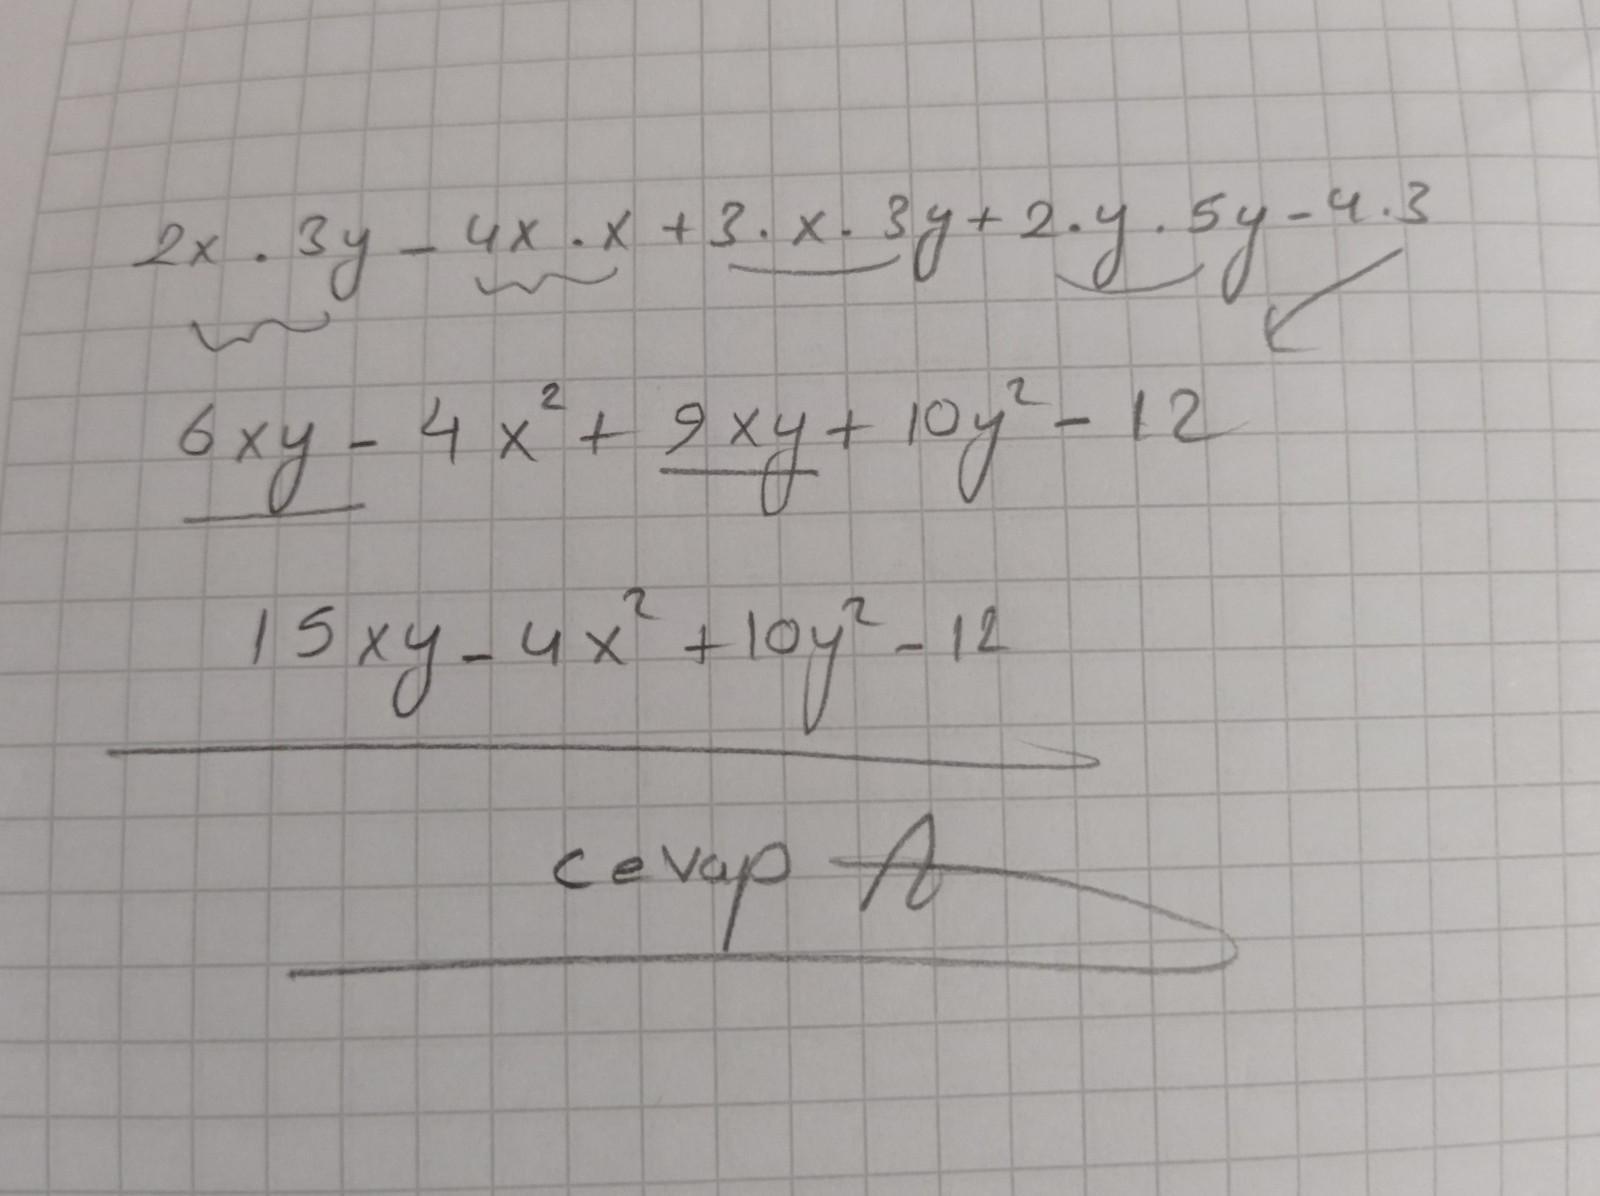 2x . 3y - 4x . x + 3 . x . 3y + 2 . y . 5y - 4 . 3
6xy - 4x² + 9xy + 10y² - 12
15xy - 4x² + 10y² - 12
cevap A